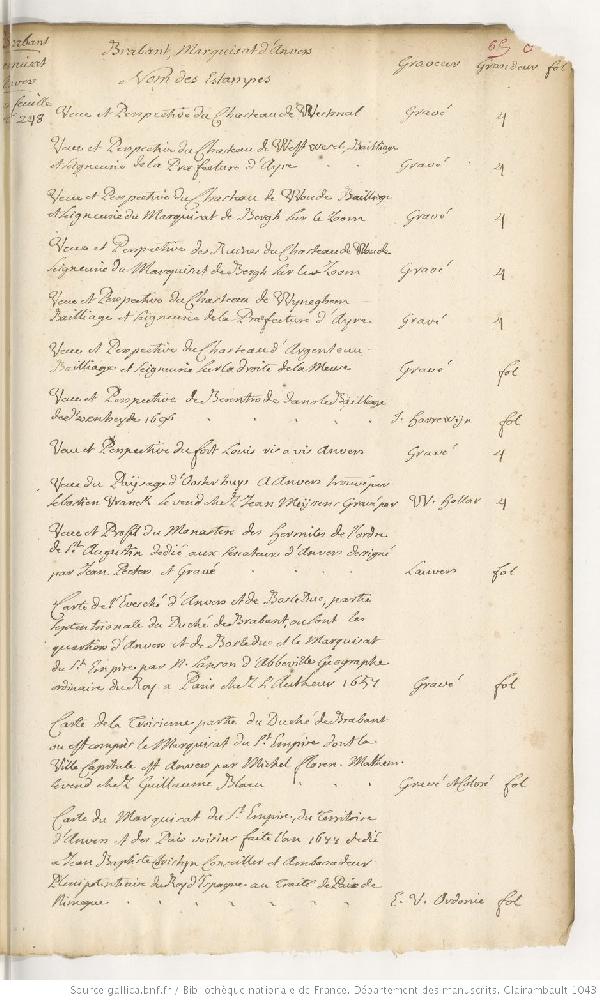 Brabant
Marquisat
d'Anvers
feuille
248
Brabant, Marquisat d'Anvers
Nom des Estampes
Graveur Grandeur fol
69
Veue et Perspective du Chasteau de Westmal Gravé 4
Veue et Perspective du Chasteau de West werel, Bailliage
et Seigneurie de la Præfecture d'Ayre Gravé 4
Veue et Perspective du Chasteau de Woude Bailliage
et Seigneurie du Marquisat de Bergh sur le Zoom Gravé 4
Veue et Perspective des Ruines du Chasteau de Woude
Seigneurie du Marquisat de Bergh sur le Zoom Gravé 4
Veue et Perspective du Chasteau de Wyneghem
Bailliage et Seigneurie de la Præfecture d'Ayre Gravé 4
Veue et Perspective du Chasteau d'Argenteau
Bailliage et Seigneurie sur la droite de la Meuse Gravé fol
Veue et Perspective de dans le Bailliage
de 1696 J. Harrewijn fol
Veue et Perspective du fort Louis vis a vis Anvers Gravé 4
Veue du Païsage d'Oosterhuys a Anvers trouvé par
Sebastien Vranck se vend chez Jean Meyssens Gravé par W. Hollar 4
Veue et Profil du Monastere des Hermites de l'ordre
de St. Augustin dedié aux Senateurs d'Anvers designé
par Jean Peeters et Gravé Lauwers fol
Carte de l'Evesché d'Anvers et de Bosleduc, partie
Septentrionale du Duché de Brabant, ou sont les
quartiers d'Anvers et de Bosleduc et le Marquisat
du St. Empire par N. Sanson d'Abbeville Geographe
ordinaire du Roy a Paris chez l'Autheur 1657 Gravé fol
Carte de la Troisieme partie du Duché de Brabant
ou est compris le Marquisat du St. Empire dont la
Ville Capitale est Anvers par Michel Floren.
se vend chez Guillaume Blaeu Gravé et Coloré fol
Carte du Marquisat du St. Empire, du Territoire
d'Anvers et des Païs voisins faite l'an 1677 dedié
a Jean Baptiste Cristyn Conseiller et Ambassadeur
Plenipotentiaire du Roy d'Espagne au Traité de Paix de
Nimegue E. V. Ordonie fol
Source gallica.bnf.fr / Bibliothèque nationale de France. Département des manuscrits. Clairambault 1043